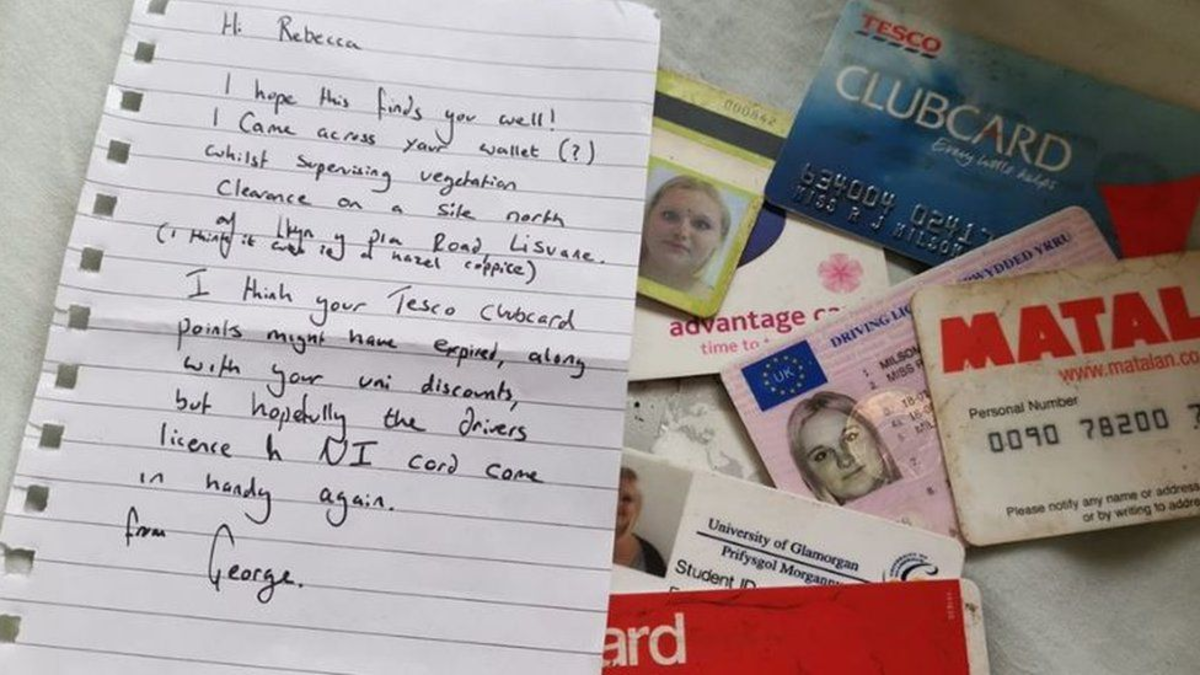 Hi Rebecca
I hope this finds you well!
I came across your wallet (?)
whilst supervising vegetation
clearance on a site north
of Llyn y Pia Road, Lisvane.
(I think it was in a hazel coppice)
I think your Tesco Clubcard
points might have expired, along
with your uni discounts,
but hopefully the drivers
licence & NI card come
in handy again.
from
George.
000842
TESCO
CLUBCARD
Every little helps
634004 02417
MISS R J MILSOM
advantage ca
time to
DRIVING LIC
WYDDED YRRU
UK
1. MILSOM
2. MISS R
MATAL
www.matalan.co
Personal Number
0090 78200 7
Please notify any name or address
or by writing to addre
University of Glamorgan
Prifysgol Morgann
Student ID
ard